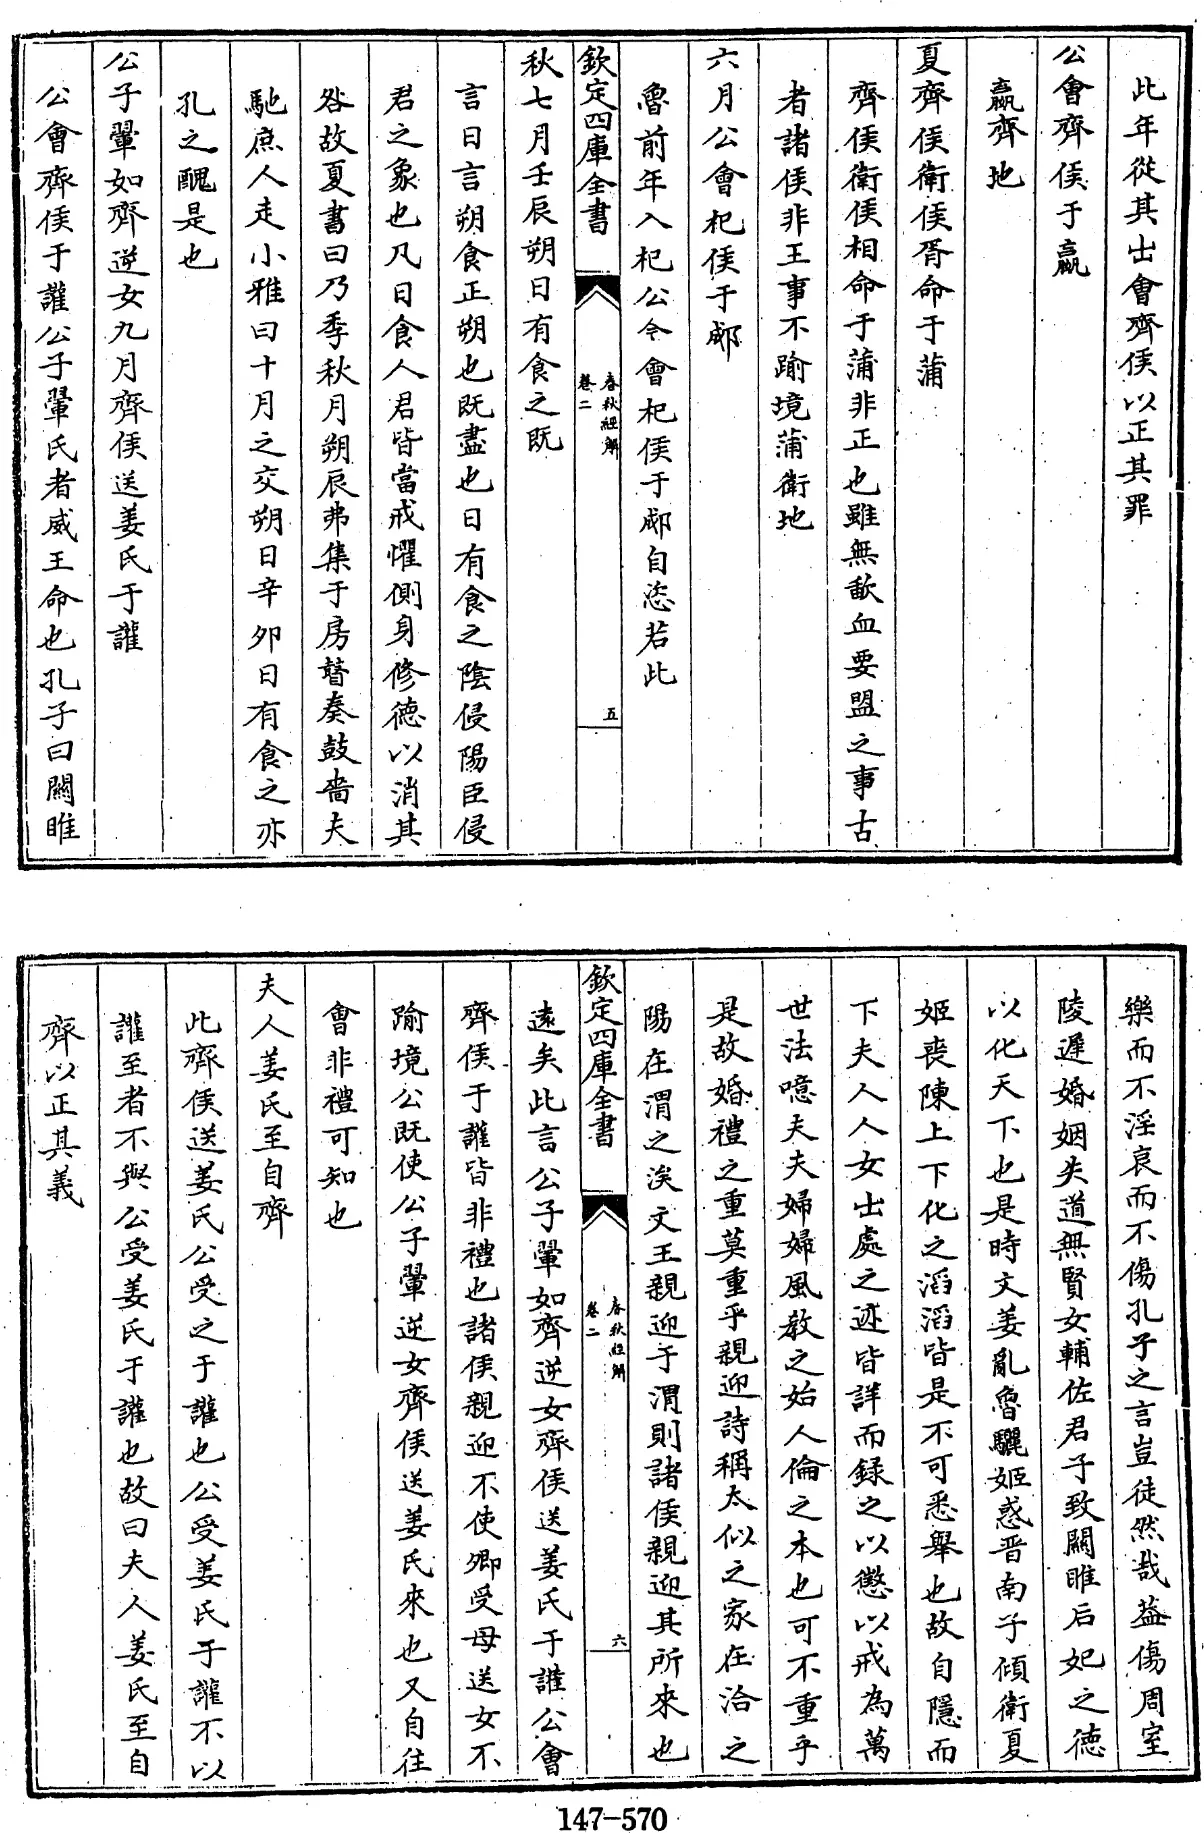 此年從其出會齊侯以正其罪
公會齊侯于嬴
嬴齊地
夏齊侯衛侯胥命于蒲
齊侯衛侯相命于蒲非正也雖無歃血要盟之事古
者諸侯非王事不踰境蒲衛地
六月公會杞侯于郕
魯前年入杞公今會杞侯于郕自恣若此
欽定四庫全書
春秋經解
卷二
五
秋七月壬辰朔日有食之既
言日言朔食正朔也既盡也日有食之陰侵陽臣侵
君之象也凡日食人君皆當戒懼側身修德以消其
咎故夏書曰乃季秋月朔辰弗集于房瞽奏鼓嗇夫
馳庶人走小雅曰十月之交朔日辛卯日有食之亦
孔之醜是也
公子翬如齊逆女九月齊侯送姜氏于讙
公會齊侯于讙公子翬氏者威王命也孔子曰關雎
樂而不淫哀而不傷孔子之言豈徒然哉葢傷周室
陵遲婚姻失道無賢女輔佐君子致關雎后妃之德
以化天下也是時文姜亂魯驪姬惑晉南子傾衛夏
姬喪陳上下化之滔滔皆是不可悉舉也故自隱而
下夫人人女出處之迹皆詳而録之以懲以戒為萬
世法噫夫夫婦婦風教之始人倫之本也可不重乎
是故婚禮之重莫重乎親迎詩稱太似之家在洽之
陽在渭之涘文王親迎于渭則諸侯親迎其所來也
欽定四庫全書
春秋經解
卷二
六
遠矣此言公子翬如齊逆女齊侯送姜氏于讙公會
齊侯于讙皆非禮也諸侯親迎不使卿受母送女不
踰境公既使公子翬逆女齊侯送姜氏來也又自往
會非禮可知也
夫人姜氏至自齊
此齊侯送姜氏公受之于讙也公受姜氏于讙不以
讙至者不與公受姜氏于讙也故曰夫人姜氏至自
齊以正其義
147-570